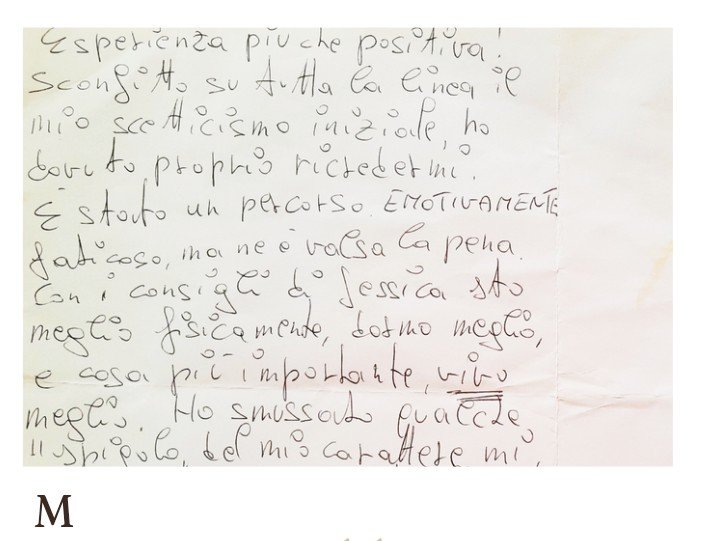 Esperienza più che positiva!
Sconfitto su tutta la linea il
mio scetticismo iniziale, ho
dovuto proprio ricredermi.
È stato un percorso EMOTIVAMENTE
faticoso, ma ne è valsa la pena.
Con i consigli di Jessica sto
meglio fisicamente, dormo meglio,
e cosa più importante, vivo
meglio. Ho smussato qualche
"spigolo" del mio carattere mi
M